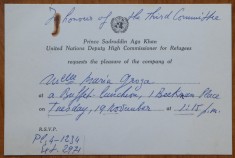 In honour of the Third Committee
Prince Sadruddin Aga Khan
United Nations Deputy High Commissioner for Refugees
requests the pleasure of the company of
Maria Groza
a Buffet luncheon, 1 Beekman Place
on Tuesday, 19 November at 1:15 p.m.
R.S.V.P.
PL 4-1234
Ext. 2971